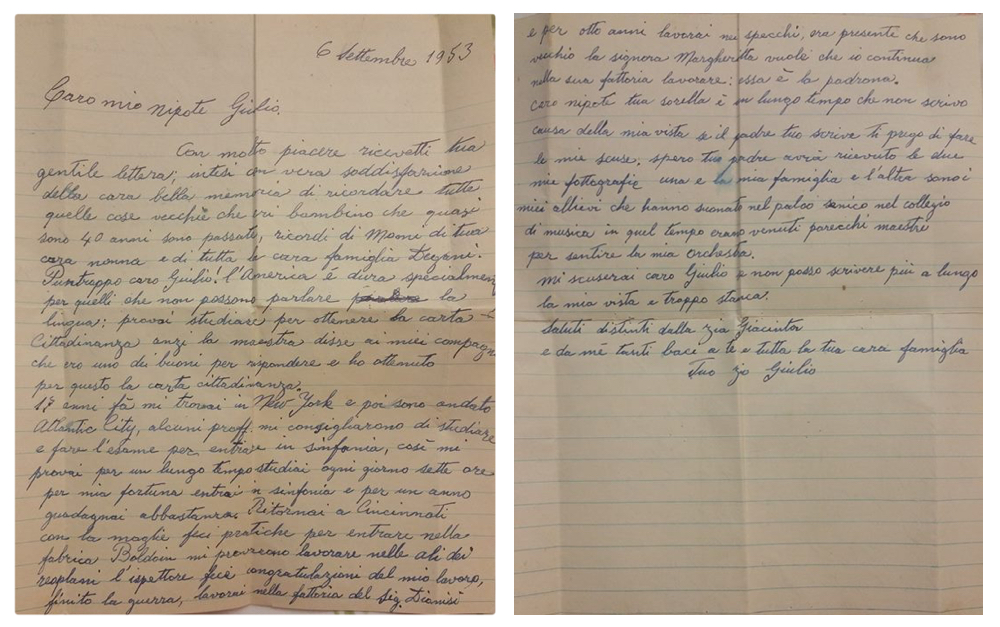 6 Settembre 1953
Caro mio nipote Giulio.
Con molto piacere ricevetti tua
gentile lettera; intesi con vera soddisfazione
della cara bella memoria di ricordare tutte
quelle cose vecchie che eri bambino che quasi
sono 40 anni sono passati, ricordi di Momi di tua
cara nonna e di tutta la cara famiglia
Puntroppo caro Giulio! l'America è dura specialmen
per quelli che non possono parlare la
lingua; provai studiare per ottenere la carta
Cittadinanza anzi la maestra disse ai miei compagn
che ero uno dei buoni per rispondere e ho ottenuto
per questo la carta cittadinanza.
anni fà mi trovai in New York e poi sono andato
Atlantic City, alcuni proff. mi consigliarono di studiare
e fare l'esame per entrare in sinfonia, così mi
provai per un lungo tempo studiai ogni giorno sette ore
per mia fortuna entrai in sinfonia e per un anno
guadagnai abbastanza. Ritornai a Cincinnati
con la moglie feci pratiche per entrare nella
fabrica Boldoin mi provarono lavorare nelle ali dei
reoplani l'ispettore fece congratulazioni del mio lavoro,
finito la guerra, lavorai nella fattoria del Sig. Dionisi
e per otto anni lavorai nei specchi, ora presente che sono
vecchio la signora Margheretta vuole che io continua
nella sua fattoria lavorare: essa è la padrona.
Caro nipote tua sorella è un lungo tempo che non scrivo
causa della mia vista se il padre tuo scrive ti prego di fare
le mie scuse. spero tuo padre avrà ricevuto le due
mie fottografie una e la mia famiglia e l'altra sono i
miei allievi che hanno suonato nel palco senico nel collegio
di musica in quel tempo erano venuti parecchi maestri
per sentire la mia orchestra.
Mi scuserai caro Giulio e non posso scrivere più a lungo
la mia vista e troppo stanca.
Saluti distinti dalla zia Giacinta
e da mè tanti baci a te e tutta la tua cara famiglia
Tuo zio Giulio